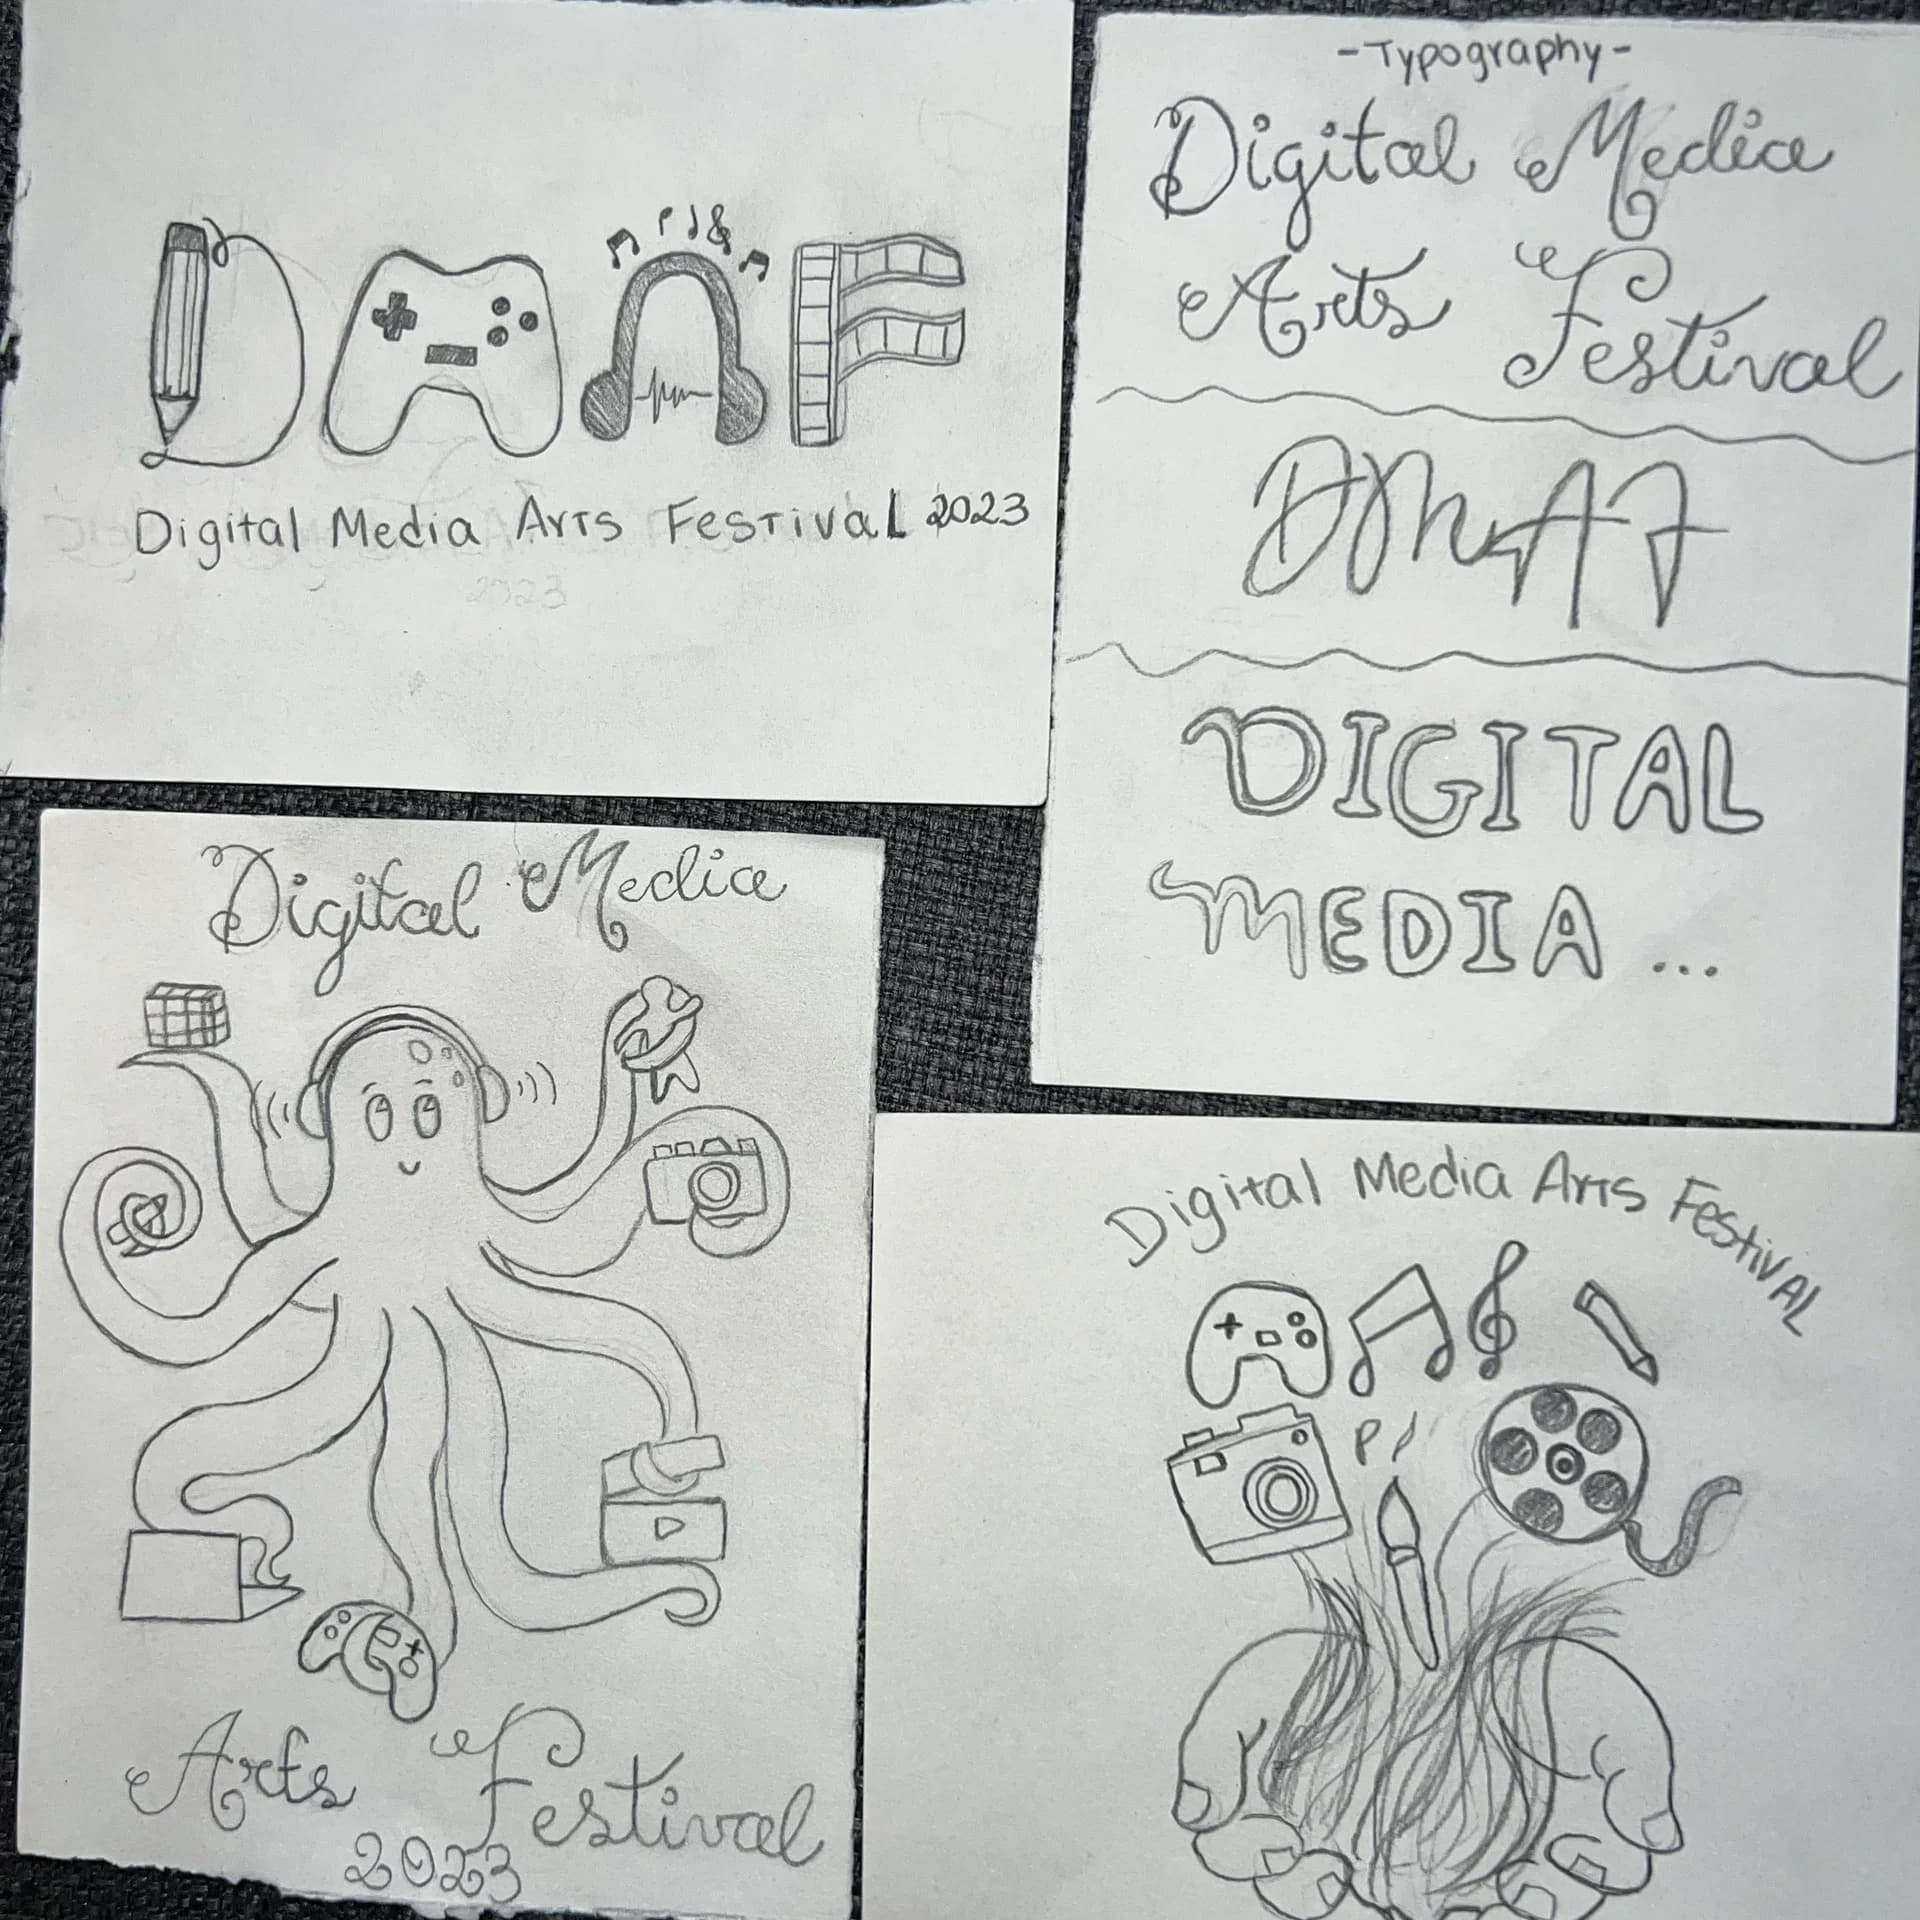 DMAF
Digital Media Arts Festival 2023
2023
-Typography-
Digital Media
Arts Festival
DMAF
DIGITAL
MEDIA ...
Digital Media
Arts Festival
2023
Digital Media Arts Festival